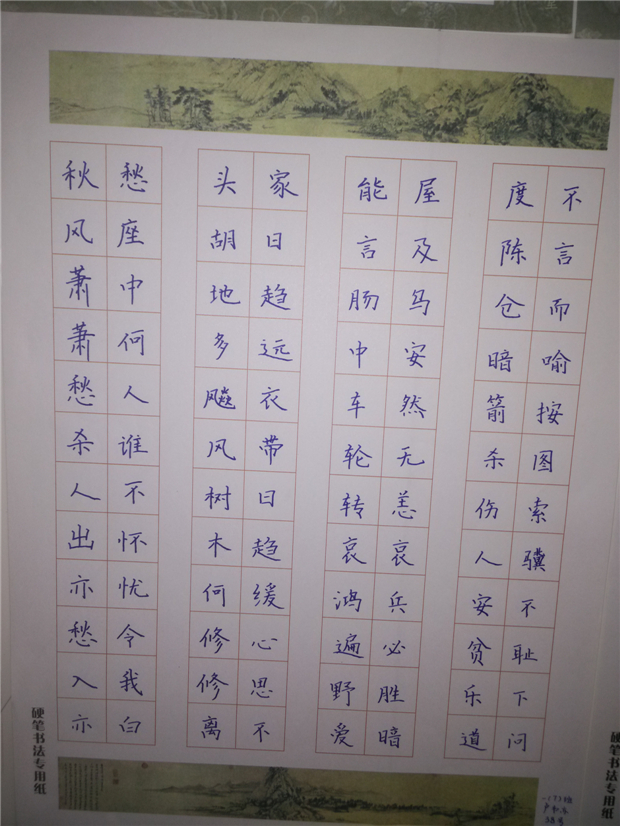 秋风萧萧愁杀人出亦愁入亦
愁座中何人谁不怀忧令我白
头胡地多飚风树木何修修离
家日趋远衣带日趋缓心思不
能言肠中车轮转哀鸿遍野爱
屋及乌安然无恙哀兵必胜暗
度陈仓暗箭杀伤人安贫乐道
不言而喻按图索骥不耻下问
硬笔书法专用纸
硬笔书法专用纸